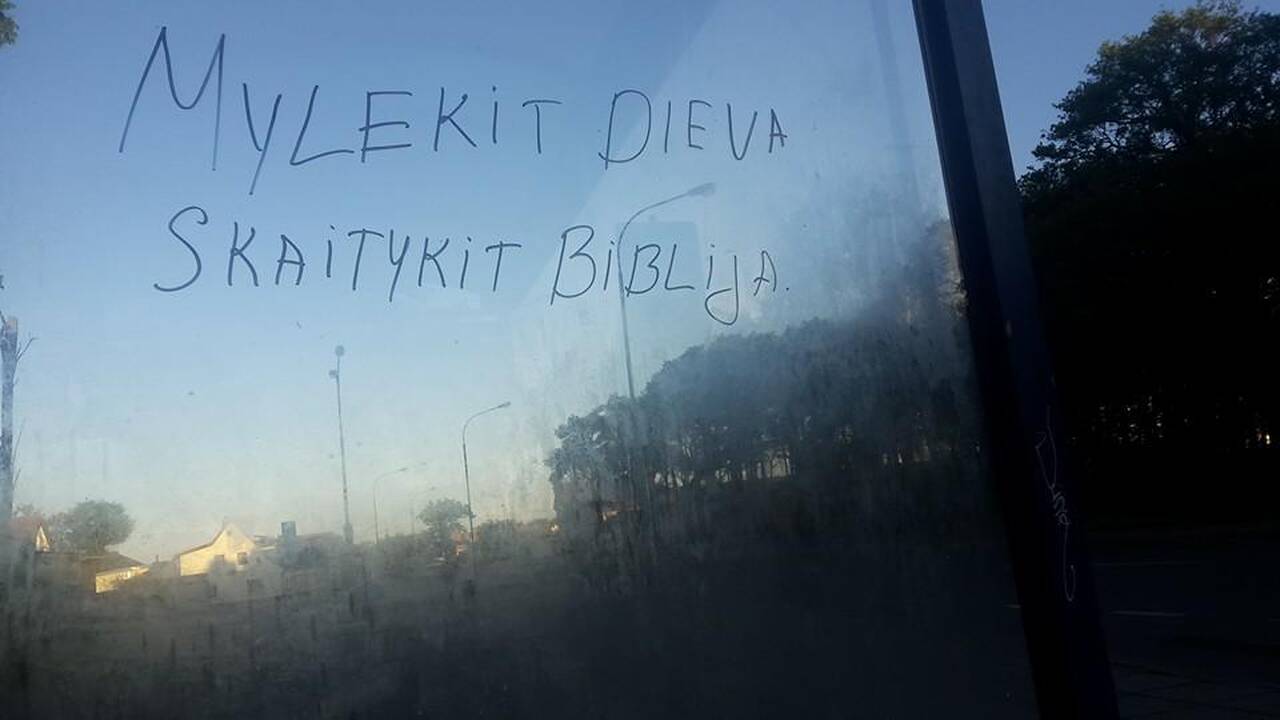 MYLEKiT DIEVA
SKAiTYKiT BiBLijA.